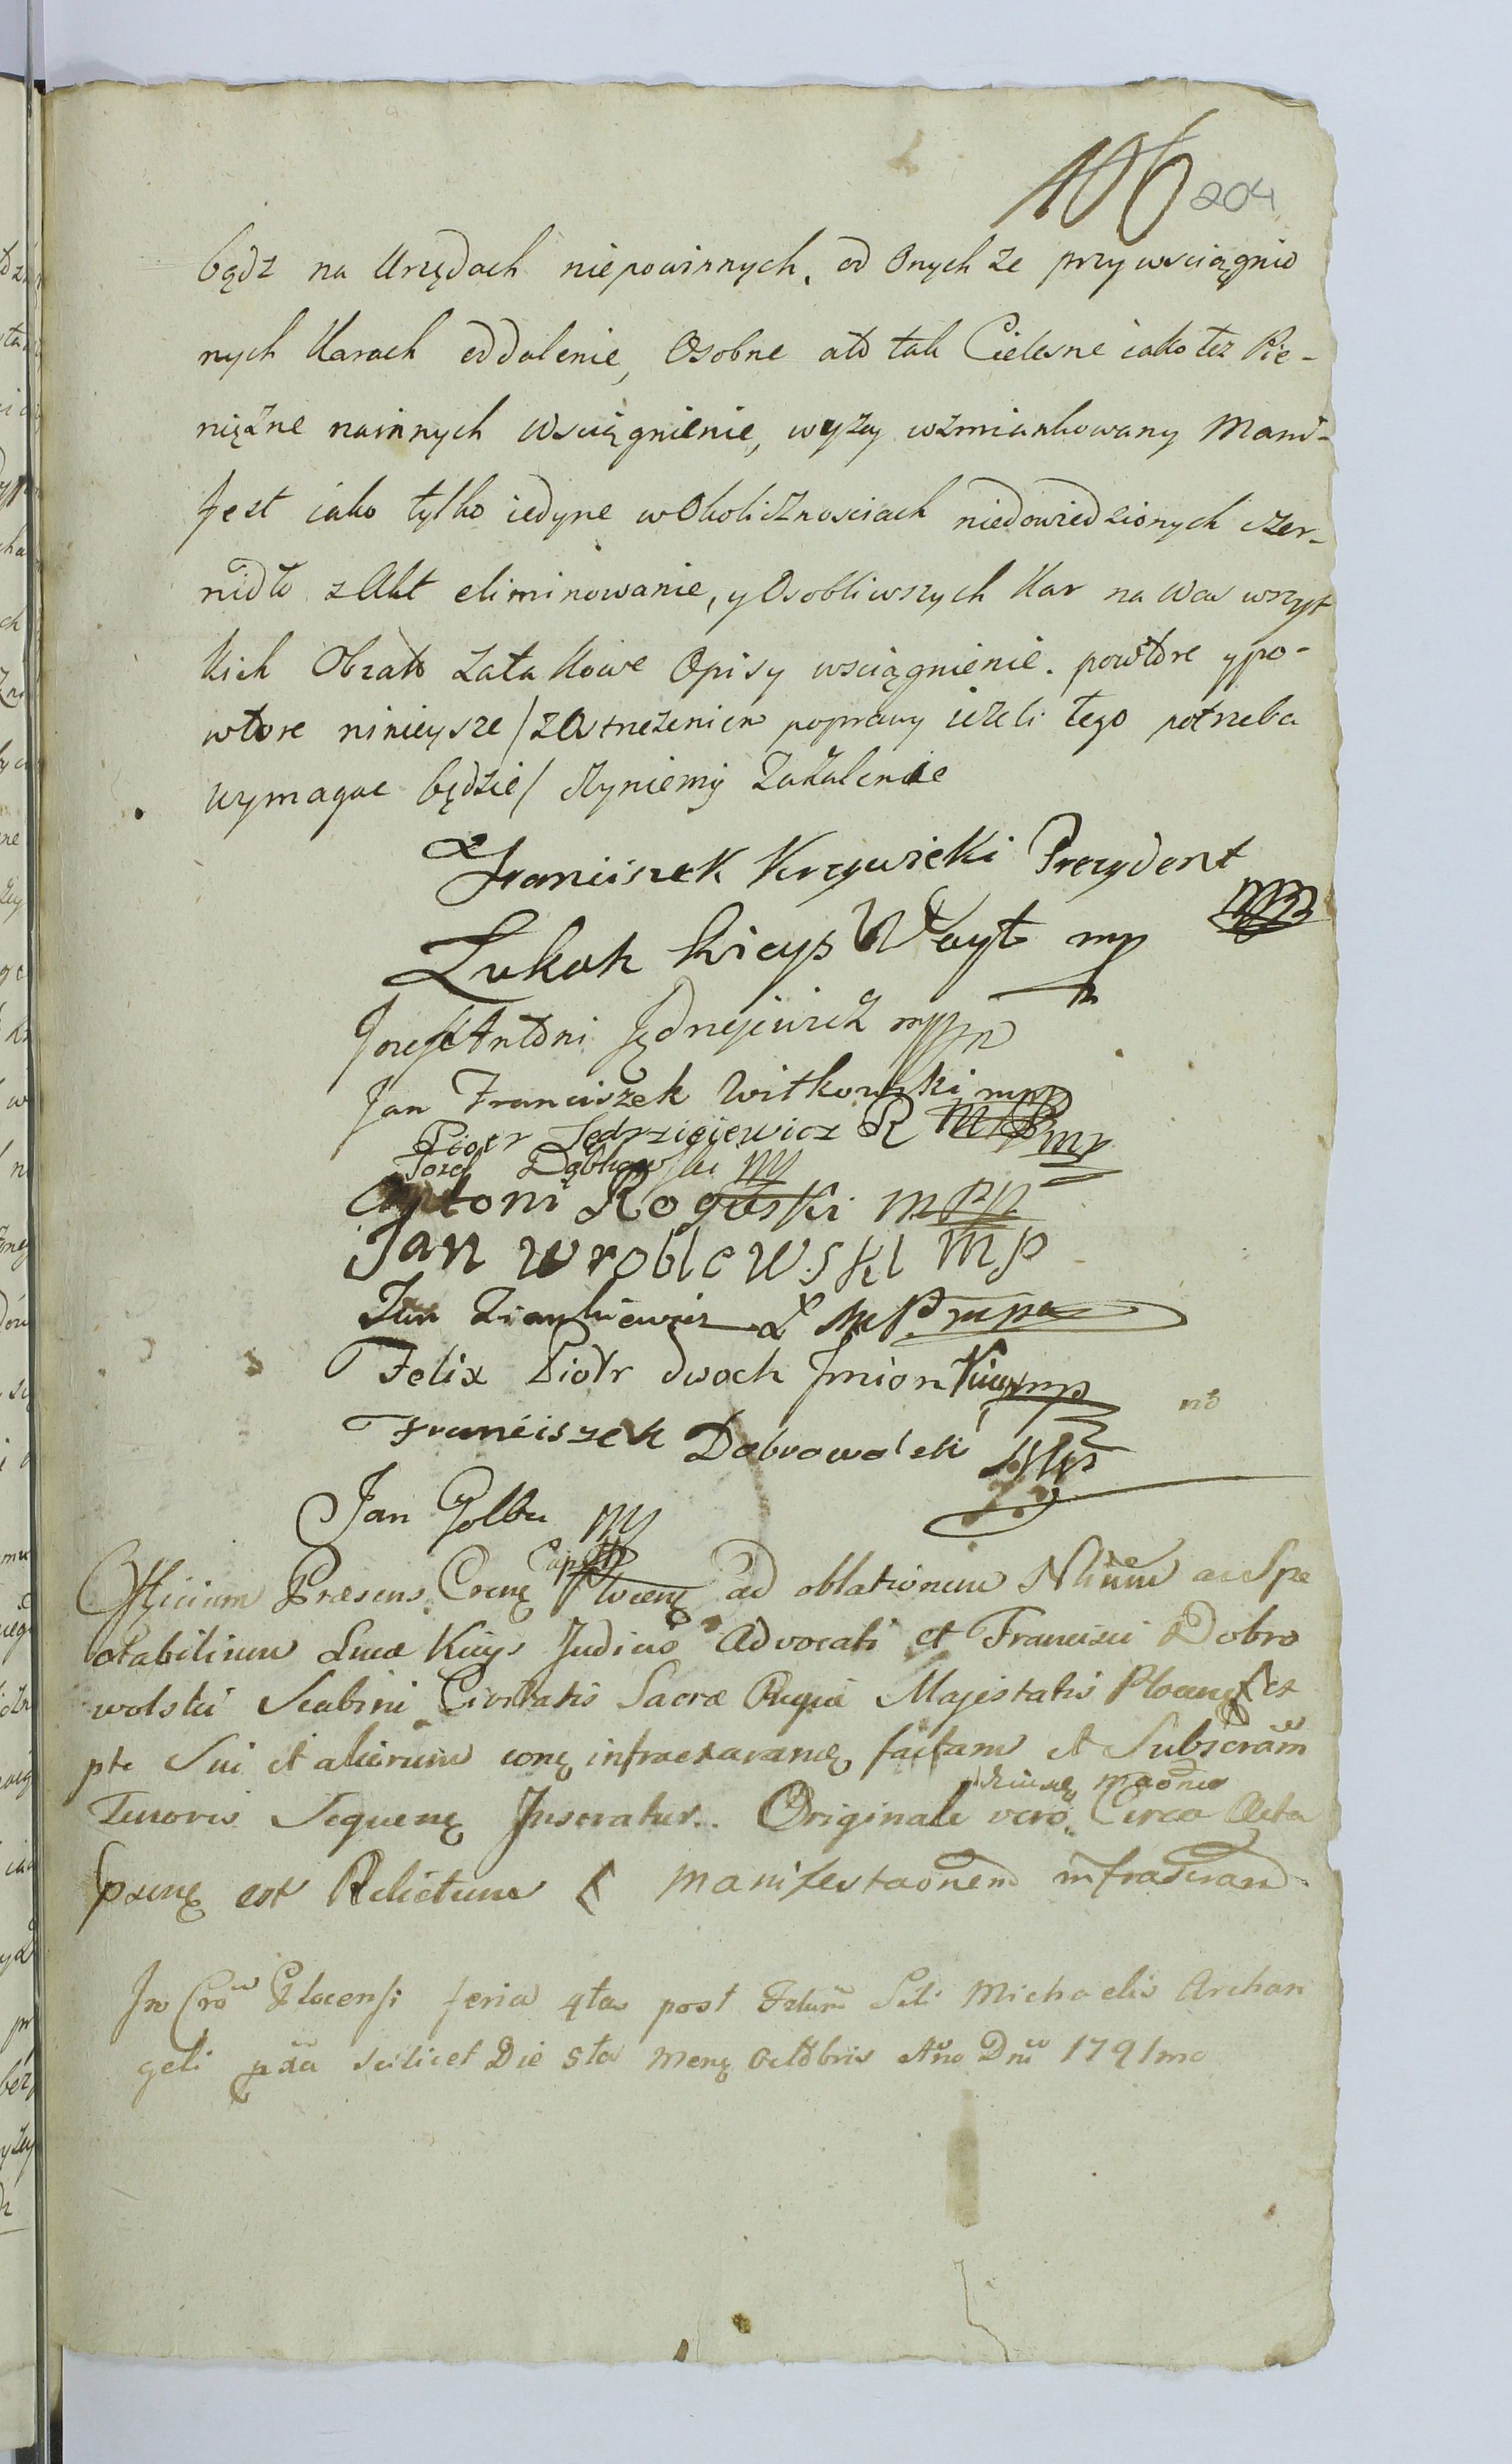 106 204
bądz na Urzędach niepowinnych, od Onychże przywsciągnio
nych Karach oddalenie, Osobne ato tak Cielesne iako też Pie-
niężne nainnych Wsciągnienie, wyzey wzmiankowany Mani-
fest iako tylko iedyne wOkolicznosciach niedowiedzionych czer-
nidło zAkt eliminowanie, y Osobliwszych Kar na Was wszyt
kich Obzało zata kowe Opisy wsciągnienie. powtore ypo-
wtore ninieysze /zOstrzeżeniem poprawy ieżeli tego potrzeba
wymagac będzie/ czyniemy Zażalenie
Franciszek Krzywicki Prezydent
mpp
Lukasz Kicys Woyt mp
Jozef Antoni Jędrzejewicz mpp
Jan Franciszek Witkowski mpp
Piotr Jędrzeiewicz R mpp
Jozef Dąbkowski mp
Antoni Roguski mpp
Jan wroblewski mp
Jan mppa
Felix Piotr dwoch Jmion Kicys mp
Franciszek Dobrowolski mpp
Jan Golba mp
Officium Præsens Crenę Capit Plocenę ad oblationem ac Spe
ctabilium Lucæ Kicys Judicis Advocati et Francisci Dobro
wolski Scabini Civitatis Sacræ Regiæ Majestatis Plocenę
pte Sui et aliorum eonę infraexaranę factam et Subscram
Tenoris Sequenę Inseratur. Originale vero Circa Acta
psenę est Relictum Manifestaonem infrascram
In Cro Plocensi feria 4ta post Festum Scti Michaelis Archan
geli pxa scilicet Die 5ta Menę Octobris Ano Dni 1791mo